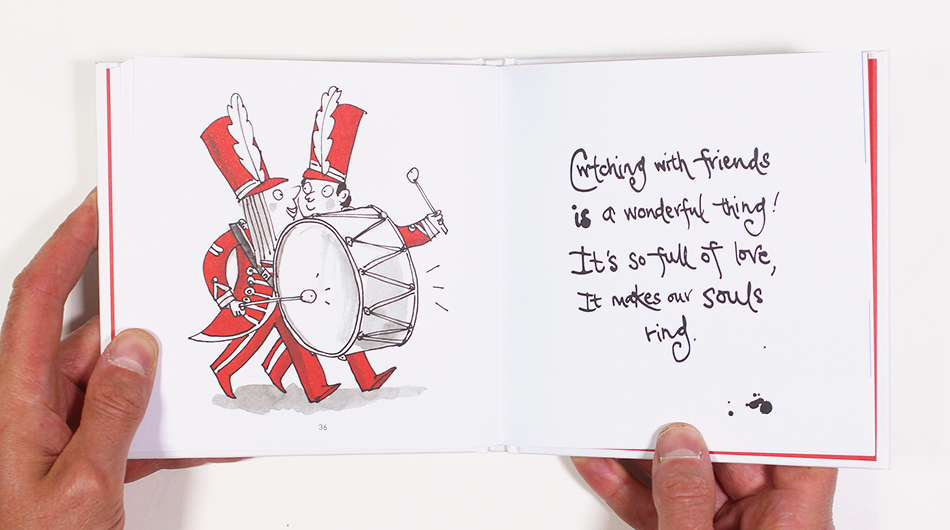 Cwtching with friends
is a wonderful thing!
It's so full of love,
It makes our souls
ring.
36